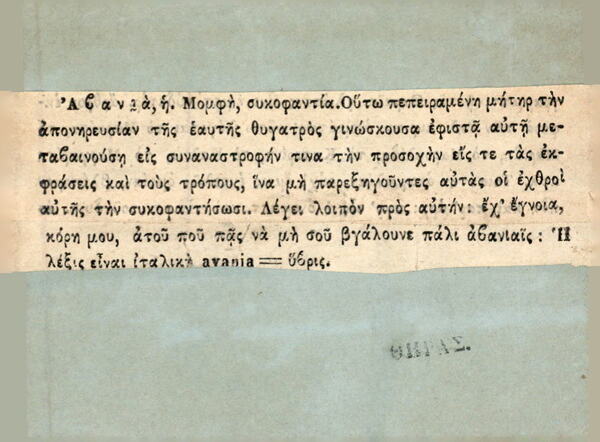 Ἀβανιὰ, ἡ. Μομφὴ, συκοφαντία. Οὕτω πεπειραμένη μήτηρ τὴν
ἀπονηρευσίαν τῆς ἑαυτῆς θυγατρὸς γινώσκουσα ἐφιστᾷ αὐτῇ με-
ταβαινούσῃ εἰς συναναστροφήν τινα τὴν προσοχὴν εἴς τε τὰς ἐκ-
φράσεις καὶ τοὺς τρόπους, ἵνα μὴ παρεξηγοῦντες αὐτὰς οἱ ἐχθροὶ
αὐτῆς τὴν συκοφαντήσωσι. Λέγει λοιπὸν πρὸς αὐτήν: ἔχ' ἔγνοια,
κόρη μου, ἀτοῦ ποῦ πᾷς νὰ μὴ σοῦ βγάλουνε πάλι ἀβανιαῖς: Ἡ
λέξις εἶναι ἰταλικὴ avania = ὕβρις.
ΘΗΡΑΣ.